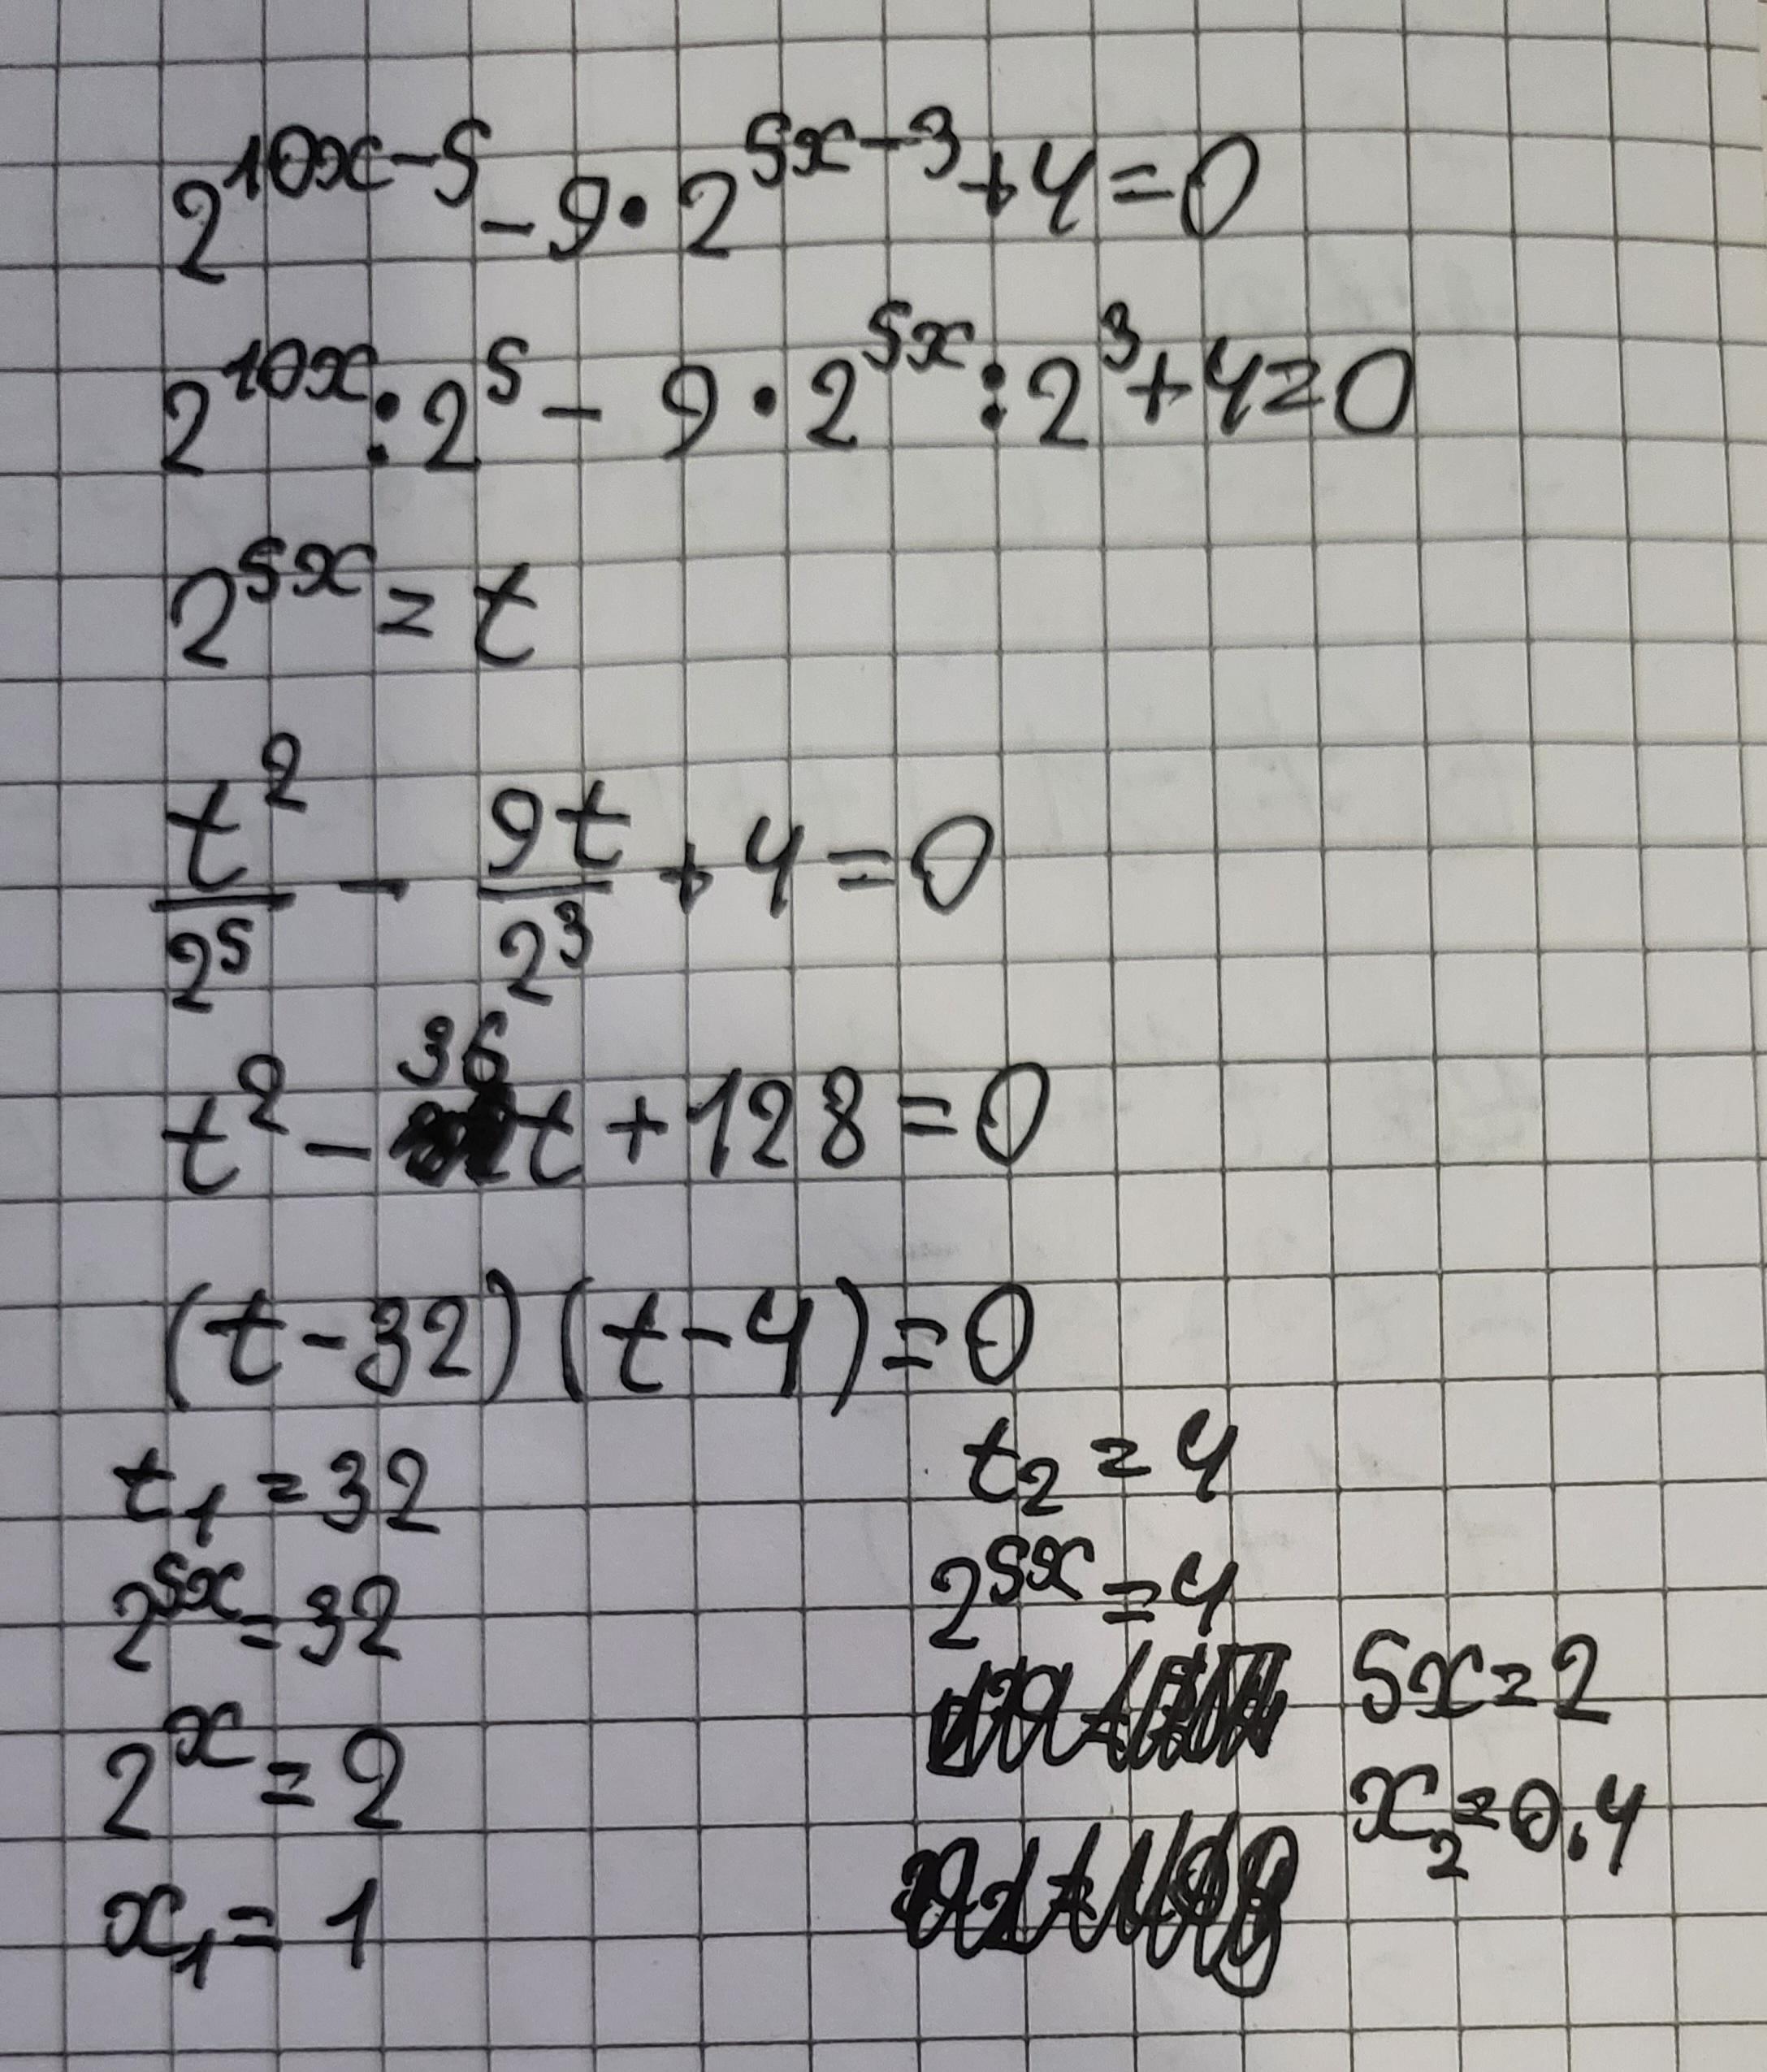 2^{10x-5} - 9·2^{5x-3} + 4 = 0
2^{10x} : 2^5 - 9·2^{5x} : 2^3 + 4 = 0
2^{5x} = t
t^2/2^5 - 9t/2^3 + 4 = 0
t^2 - 36t + 128 = 0
(t-32)(t-4) = 0
t_1 = 32
2^{5x} = 32
2^x = 2
x_1 = 1
t_2 = 4
2^{5x} = 4
5x = 2
x_2 = 0.4